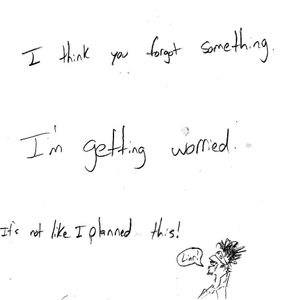 I think you forgot something.
I'm getting worried.
It's not like I planned this!
Liar!